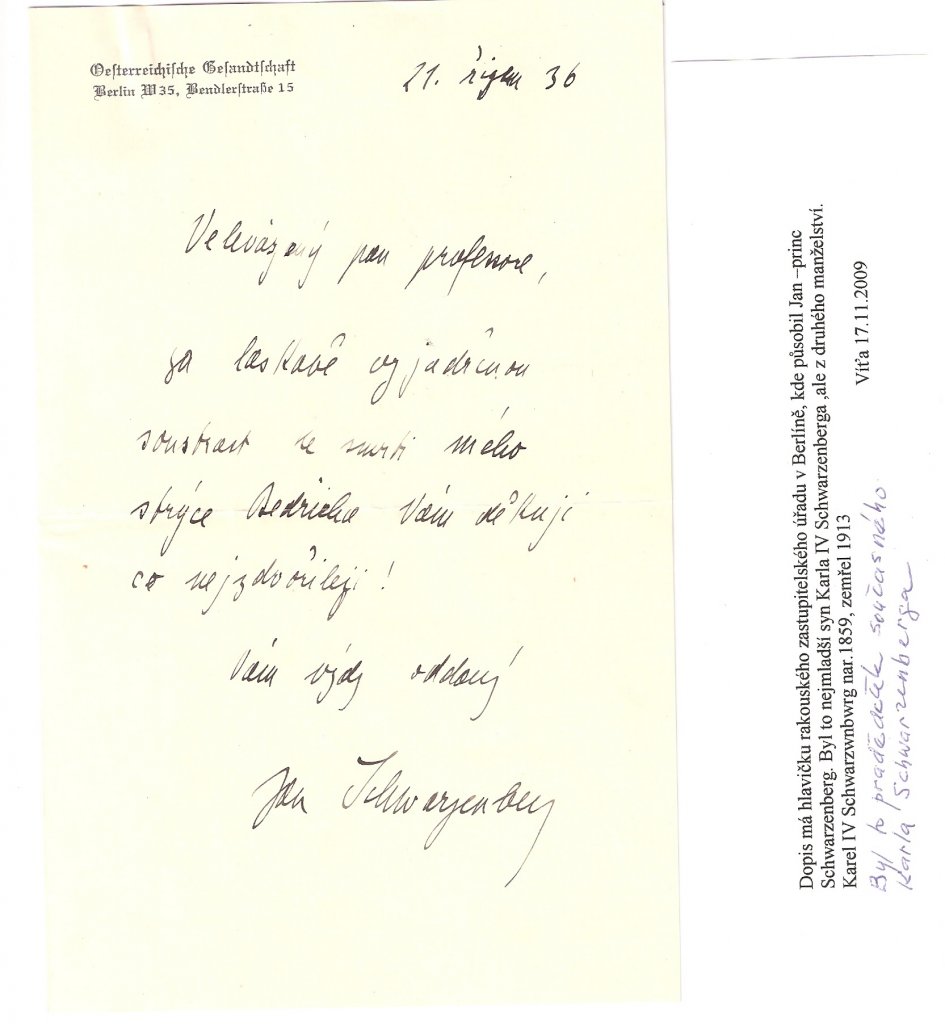 Oesterreichische Gesandtschaft
Berlin W 35, Bendlerstraße 15
21. říjen 36
Velevážený pan profesore,
za laskavě vyjádřenou
soustrast ze smrti mého
strýce Bedřicha Vám děkuji
co nejzdvořileji!
Vám vždy oddaný
Jan Schwarzenberg
Dopis má hlavičku rakouského zastupitelského úřadu v Berlíně, kde působil Jan –princ
Schwarzenberg. Byl to nejmladší syn Karla IV Schwarzenberga ,ale z druhého manželství.
Karel IV Schwarzwnbwrg nar.1859, zemřel 1913
Víťa 17.11.2009
Byl to pradědeček současného
Karla Schwarzenberga